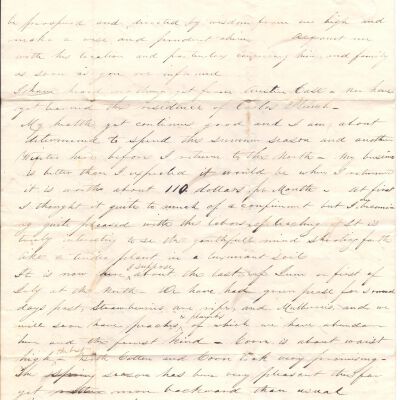 be prospered and directed by wisdom from on high and
make a wise and prudent choice Acquaint me
with his location and particulars concerning him and family
as soon as you are informed
I have heard nothing yet from Austin Case nor have
yet learned the residence of Carlos
My health yet continues good and I am about
determined to spend this summer season and another
Winter here before I return to the North - My business
is better than I expected it would be when I returned
it is worth about 110 dollars pr Month - At first
I thought it quite to much of a confinement but I am becoming
quite pleased with the labors of teaching It is
truly interesting to see the youthful mind shooting forth
like a tender plant in a luxuriant soil
It is now here I suppose about the last of June or first of
July at the North We have had green peas for several
days past, Strawberries are ripe, and Mulberries, and we
will soon have peaches of which we have abundance
here and the finest kind - Corn is about waist
high - Both Cotton and Corn look very promising -
The season has been very pleasant thus far
yet more backward than usual